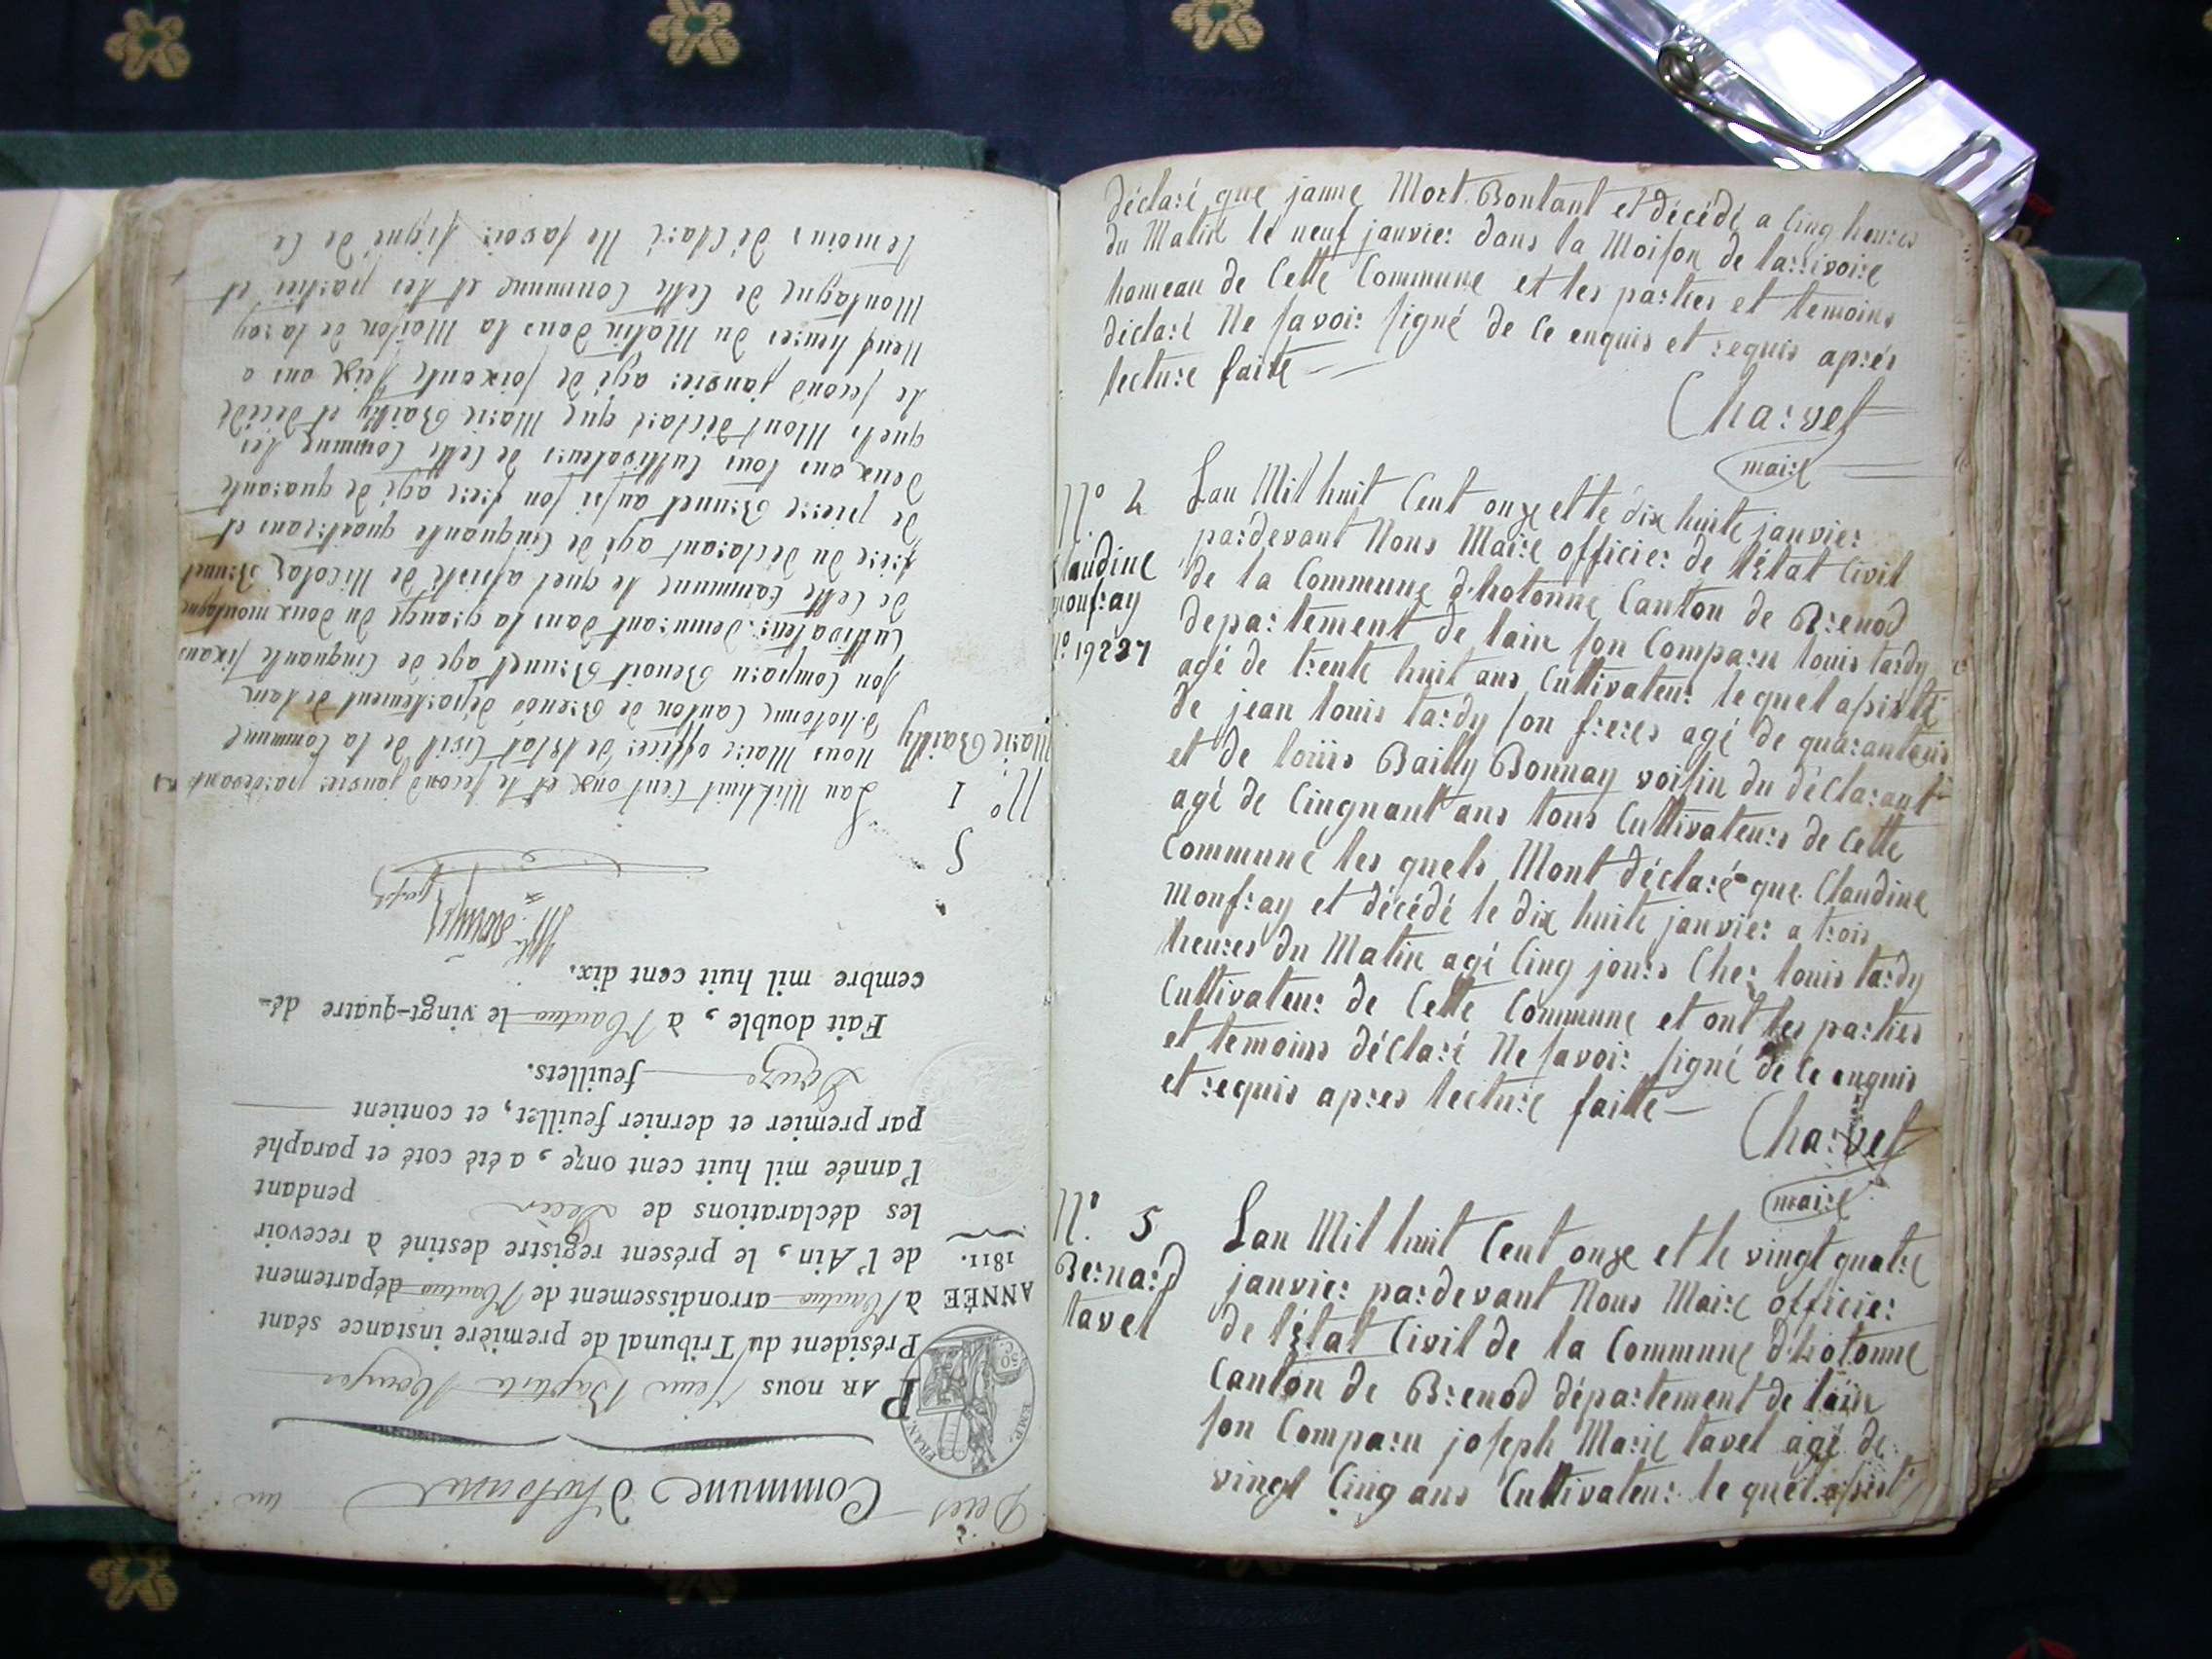 Decès
Commune d'hotonne un
PAR NOUS Jean Baptiste
Président du Tribunal de première instance séant
ANNÉE 1811.
à Nantua arrondissement de Nantua département
de l'Ain, le présent registre destiné à recevoir
les déclarations de Décès pendant
l'année mil huit cent onze, a été coté et paraphé
par premier et dernier feuillet, et contient
Douze feuillets.
Fait double, à Nantua le vingt-quatre dé-
cembre mil huit cent dix.
EMP. FRAN.
50 C.
N.º 1
Marie Bailly
Lan Mil huit Cent onze et le second janvier pardevant
nous Maire officier de l'Etat Civil de la Commune
d'hotonne Canton de Brenod département de lain
son Comparu Benoit Brunet agé de Cinquante sixans
Cultivateur demeurant dans la grange du doux montagne
de Cette Commune le quel assisté de Nicolas Brunet
frere du déclarant agé de Cinquante quastreans et
de pierre Brunet aussi son frere agé de quarante
deux ans tous Cultivateurs de Cette Commune les
quels Mont déclaré que Marie Bailly et décédé
le second janvier agé de soixante seize ans a
Neuf heures du Matin dans la Maison de laray
Montagne de Cette Commune et les parties et
temoins déclaré Ne savoir signé de Ce
déclaré que janne Mort Bontant et décédé a Cinq heures
du Matin le neuf janvier dans la Moison de larrivoire
hameau de Cette Commune et les parties et temoins
diclaré Ne savoir signé de Ce enquis et requis aprés
lecture faite
Charvet
maire
N.º 4
Claudine
monfray
Nº 19227
Lan Mil huit Cent onze et le dix huite janvier
pardevant Nous Maire officier de l'Etat Civil
de la Commune d'hotonne Canton de Brenod
departement de lain son Comparu louis tardy
agé de trente huit ans Cultivateur le quel assisté
de jean louis tardy son freres agé de quaranteans
et de loüis Bailly Bonnay voisin du déclarant
agé de Cinquant ans tous Cultivateurs de Cette
Commune les quels Mont déclaré que Claudine
monfray et décédé le dix huite janvier a trois
heures du Matin agé Cinq jours Chez louis tardy
Cultivateur de Cette Commune et ont les parties
et temoins déclaré Ne savoir signé de Ce enquis
et requis apres lecture faitte
Charvet
maire
N.º 5
Bernard
tavel
Lan Mil huit Cent onze et le vingt quatre
janvier pardevant Nous Maire officier
de l'Etat Civil de la Commune d'hotonne
Canton de Brenod département de lain
son Comparu joseph Marie tavel agé de
vingt Cinq ans Cultivateur le quel assisté